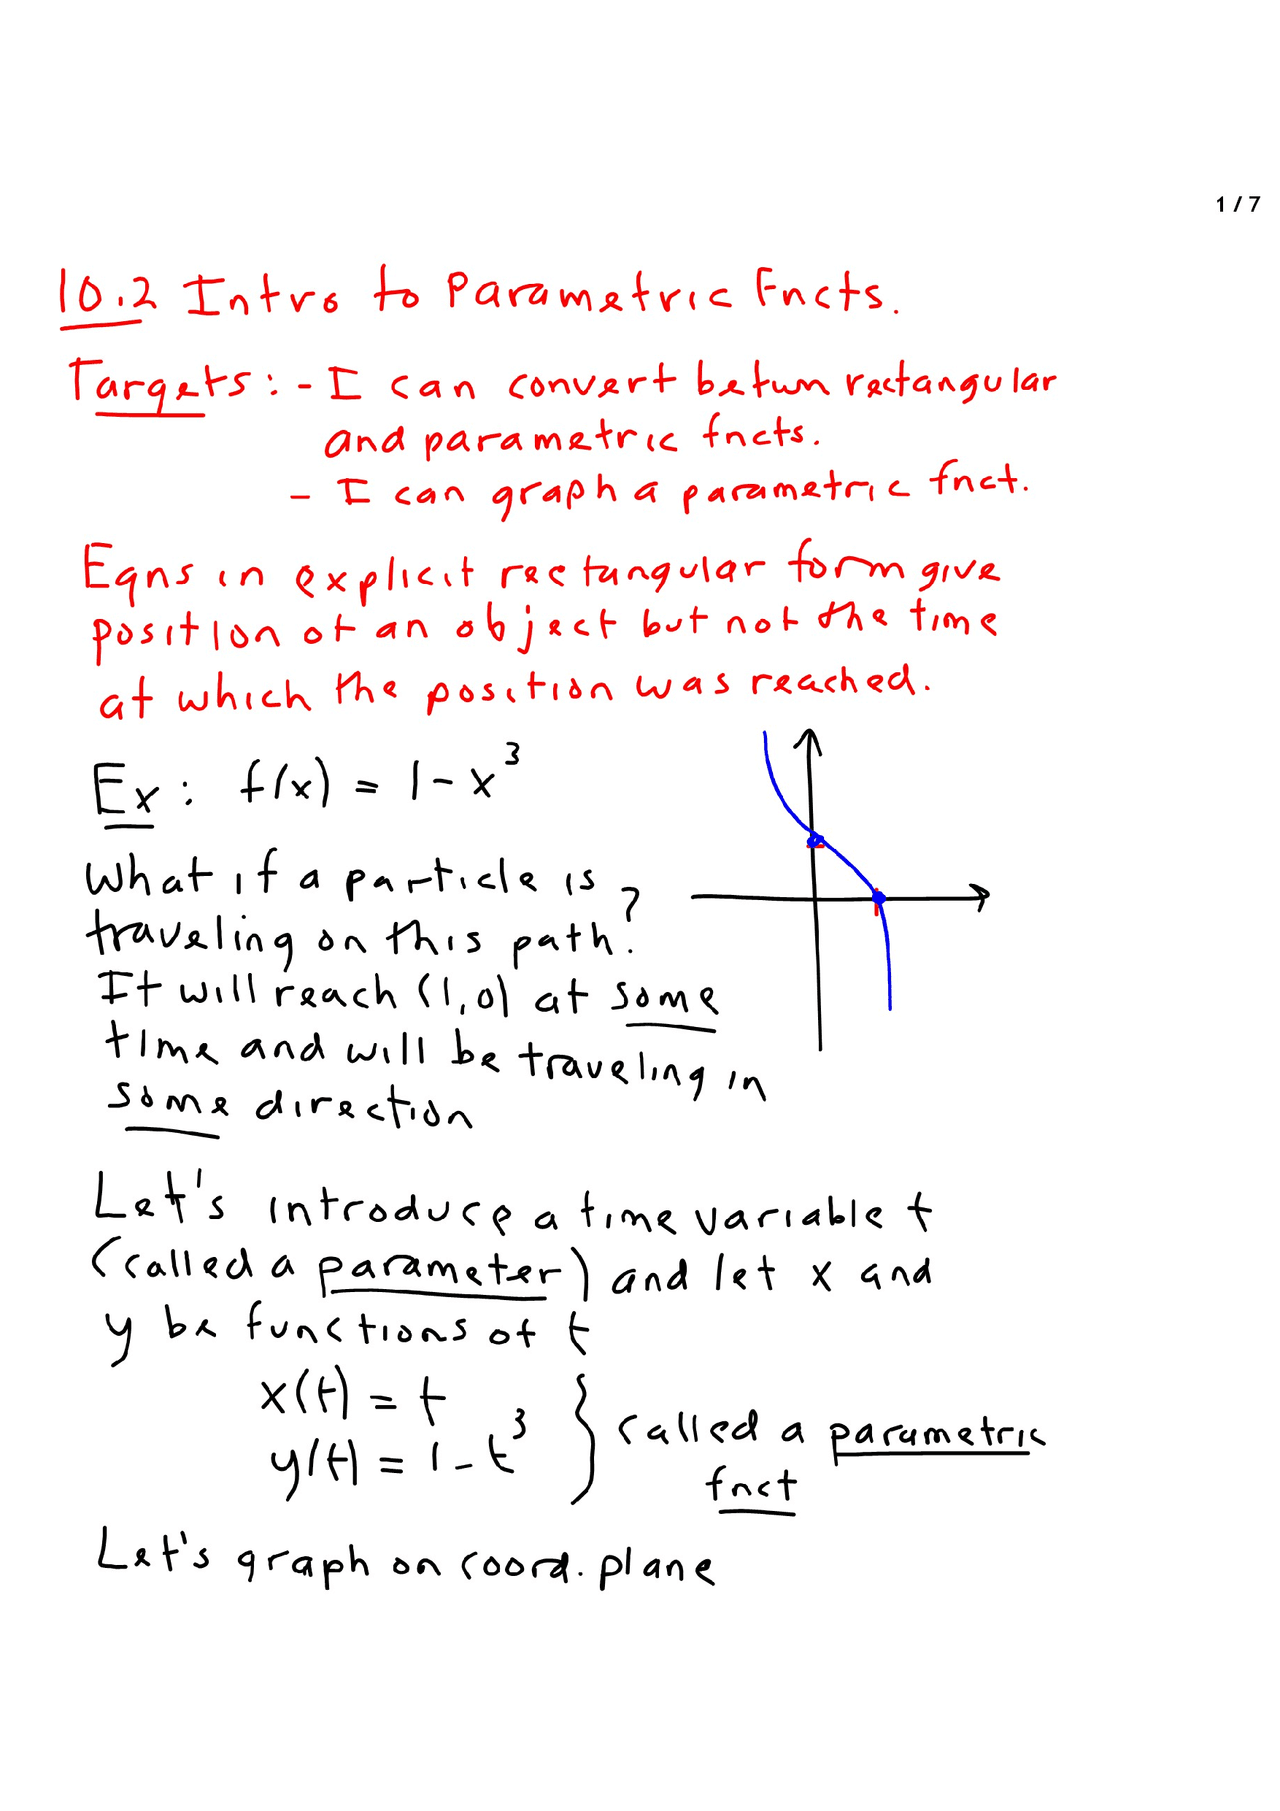 1 / 7
10.2 Intro to Parametric Fncts.
Targets: - I can convert betwn rectangular
and parametric fncts.
- I can graph a parametric fnct.
Eqns in explicit rectangular form give
position of an object but not the time
at which the position was reached.
Ex: f(x) = 1 - x³
What if a particle is
traveling on this path?
It will reach (1,0) at some
time and will be traveling in
some direction
Let's introduce a time variable t
(called a parameter) and let x and
y be functions of t
x(t) = t
y(t) = 1 - t³ } called a parametric
fnct
Let's graph on coord. plane